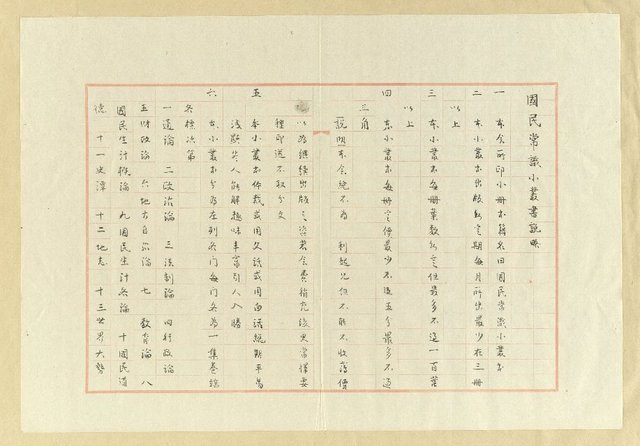 國民常識小叢書說略
一 本會所印小冊書籍名曰國民常識小叢書
二 本小叢書出版無定期每月所出最少在三冊
以上
三 本小叢書每冊葉數無定但最多不過一百葉
以上
四 本小叢書每冊定價最少不過五分最多不過
三角
說明 本會絕不為利起見但不能不收薄價
以為繼續出版之資若會費稍充後更當擇要
種印送不取分文
五 本小叢書體裁或用文話或用白話總期平易
淺顯 人人能解趣味丰富引人入勝
六 本小叢書分為左列各門每門各為一集卷
一通論 二政治論 三法制論 四行政論
五財政論 六地方自治論 七教育論 八
國民生計 論 九國民生計各論 十國民道
德 十一史譚 十二地志 十三世界大勢